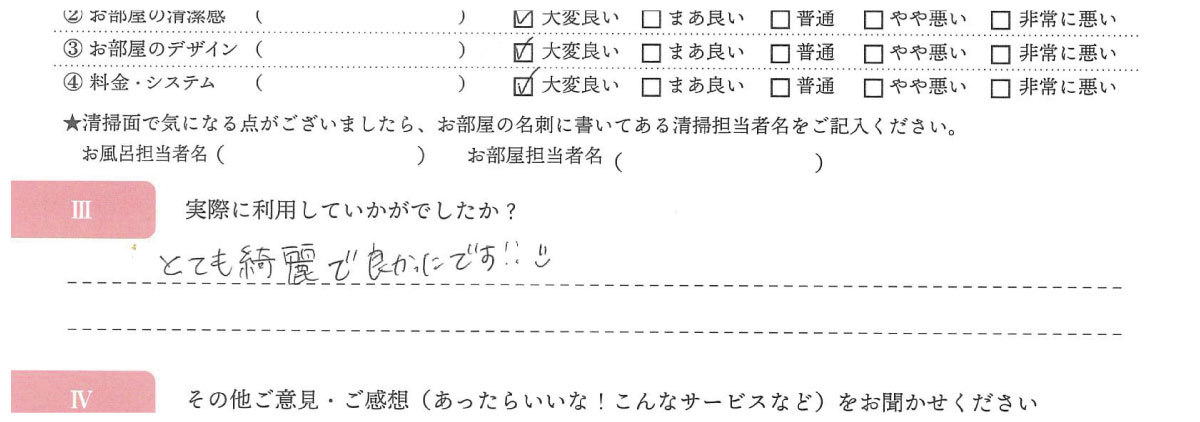 ② お部屋の清潔感 （ ） ☑ 大変良い □ まあ良い □ 普通 □ やや悪い □ 非常に悪い
③ お部屋のデザイン （ ） ☑ 大変良い □ まあ良い □ 普通 □ やや悪い □ 非常に悪い
④ 料金・システム （ ） ☑ 大変良い □ まあ良い □ 普通 □ やや悪い □ 非常に悪い
★清掃面で気になる点がございましたら、お部屋の名刺に書いてある清掃担当者名をご記入ください。
お風呂担当者名（ ） お部屋担当者名（ ）
Ⅲ 実際に利用していかがでしたか？
とても綺麗で良かったです!!
Ⅳ その他ご意見・ご感想（あったらいいな！こんなサービスなど）をお聞かせください